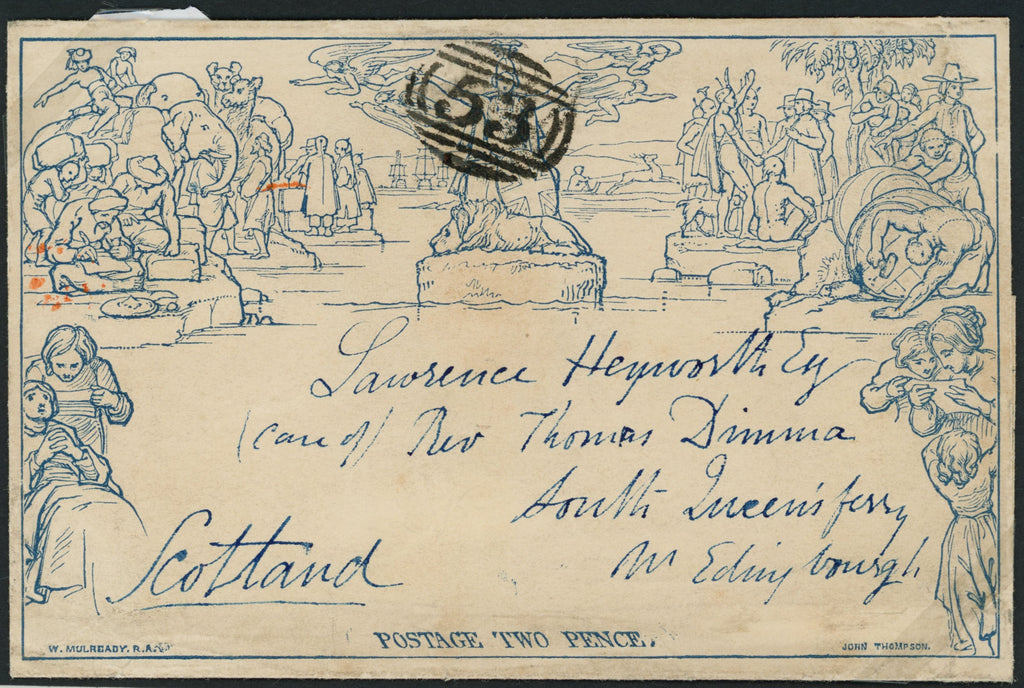 53
Lawrence Heyworth Esq
(care of) Rev Thomas Dimma
South Queensferry
Nr Edinbourgh
Scotland
POSTAGE TWO PENCE.
W. MULREADY. R.A.
JOHN THOMPSON.